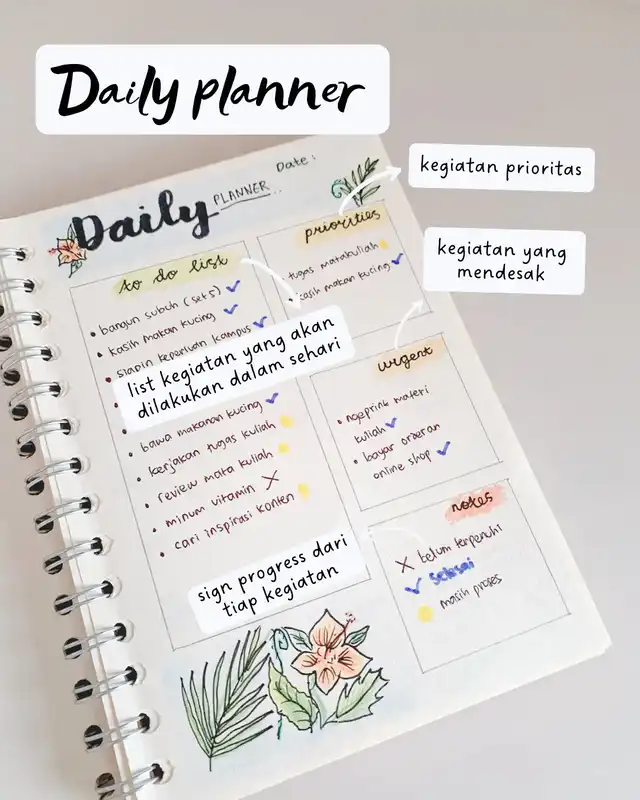 Daily planner
Daily PLANNER
Date :
kegiatan prioritas
priorities
tugas matakuliah
kasih makan kucing
kegiatan yang
mendesak
to do list
bangun subuh (set 5)
kasih makan kucing
siapin keperluan kampus
list kegiatan yang akan
dilakukan dalam sehari
bawa makanan kucing
kerjakan tugas kuliah
review mata kuliah
minum vitamin
cari inspirasi konten
urgent
ngeprint materi
kuliah
bayar orderan
online shop
sign progress dari
tiap kegiatan
notes
belum terpenuhi
selesai
masih proses